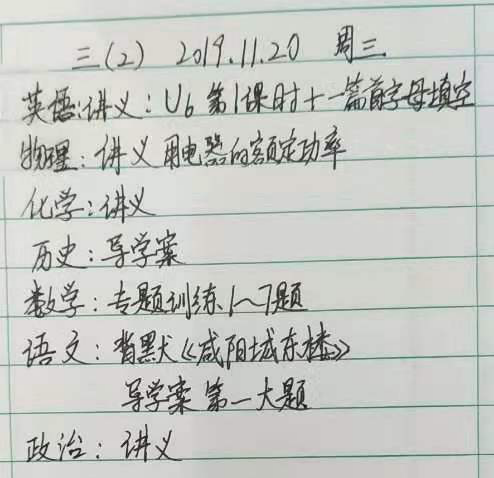 三(2) 2019.11.20 周三
英语:讲义:U6 第1课时+一篇首字母填空
物理:讲义 用电器的额定功率
化学:讲义
历史:导学案
数学:专题训练1~7题
语文:背默《咸阳城东楼》
导学案 第一大题
政治:讲义